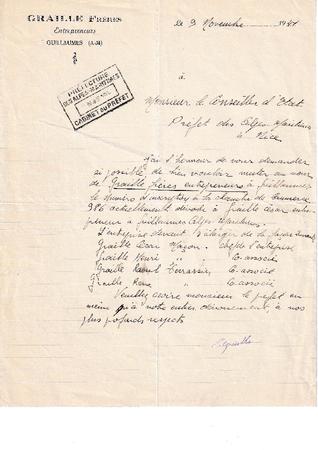 GRAILLE FRÈRES
Entrepreneurs
GUILLAUMES (A-M)
le 9 Novembre 1941
PRÉFECTURE
DES ALPES-MARITIMES
CABINET DU PRÉFET
à
Monsieur le Conseiller d'Etat
Préfet des Alpes Maritimes
à Nice
J'ai l'honneur de vous demander
si possible de bien vouloir muter au nom
de Graille frères entrepreneurs à Guillaumes
le numéro d'inscription à la chambre de commerce
386 actuellement donné à Graille César entre-
preneur à Guillaumes Alpes Maritimes.
L'entreprise devant de la façon suivante
Graille César Maçon. Chef de l'entreprise
Graille Henri " Co associé
Graille Raoul Terrassier Co associé
Graille René " Co associé
Veuillez croire monsieur le préfet en
même à notre entier dévouement, à nos
plus profonds respects